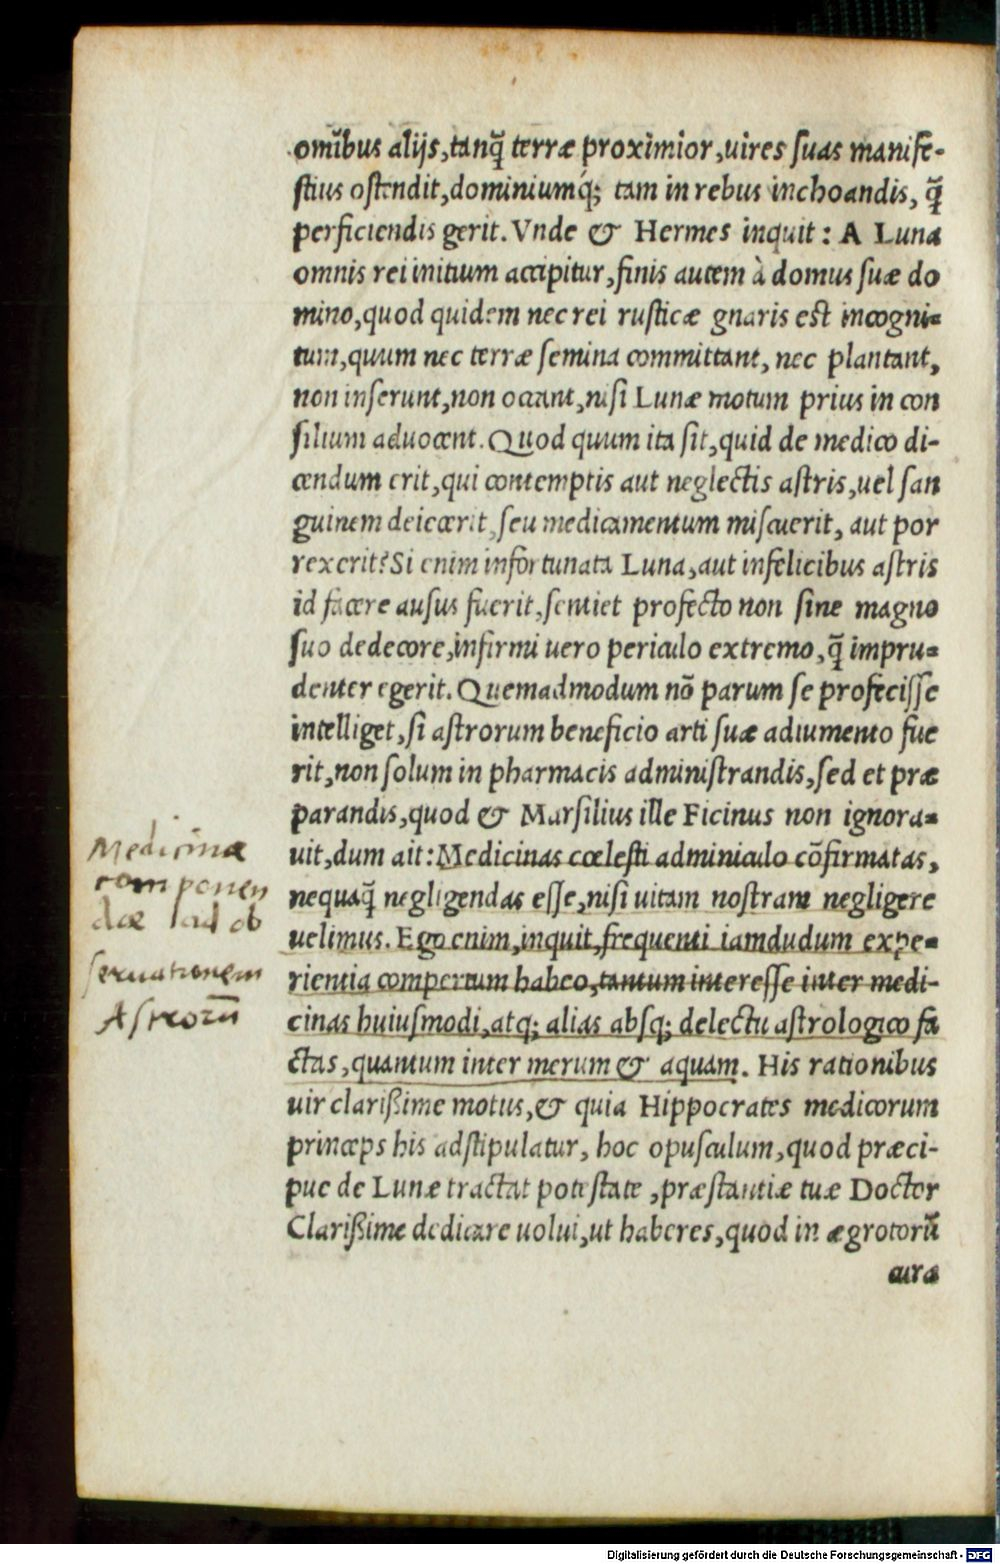 om̃ibus alijs,tanq̃ terræ proximior,uires suas manife-
stius ostendit,dominiumq́; tam in rebus inchoandis, q̃
perficiendis gerit. Vnde & Hermes inquit: A Luna
omnis rei initium accipitur,finis autem à domus suæ do
mino,quod quidem nec rei rusticæ gnaris est incogni-
tum,quum nec terræ semina committant, nec plantant,
non inserunt,non occant,nisi Lunæ motum prius in con
silium aduocent. Quod quum ita sit,quid de medico di-
cendum erit,qui contemptis aut neglectis astris,uel san
guinem deiecerit,seu medicamentum miscuerit, aut por
rexerit?Si enim infortunata Luna,aut infelicibus astris
id facere ausus fuerit,sentiet profecto non sine magno
suo dedecore,infirmi uero periculo extremo,q̃ impru-
denter egerit. Quemadmodum nõ parum se profecisse
intelliget,si astrorum beneficio arti suæ adiumento fue
rit,non solum in pharmacis administrandis,sed et præ
parandis,quod & Marsilius ille Ficinus non ignora-
uit,dum ait:Medicinas cœlesti adminiculo cõfirmatas,
nequaq̃ negligendas esse,nisi uitam nostram negligere
uelimus. Ego enim,inquit,frequenti iamdudum expe-
rientia compertum habeo,tantum interesse inter medi-
cinas huiusmodi,atq; alias absq; delectu astrologico fa
ctas,quantum inter merum & aquam. His rationibus
uir clarißime motus,& quia Hippocrates medicorum
princeps his adstipulatur, hoc opusculum,quod præci-
pue de Lunæ tractat potestate,præstantiæ tuæ Doctor
Clarißime dedicare uolui,ut haberes,quod in ægrotorũ
cura
Medicinæ
componen
dæ ad ob
seruationem
Astrorũ
Digitalisierung gefördert durch die Deutsche Forschungsgemeinschaft - DFG